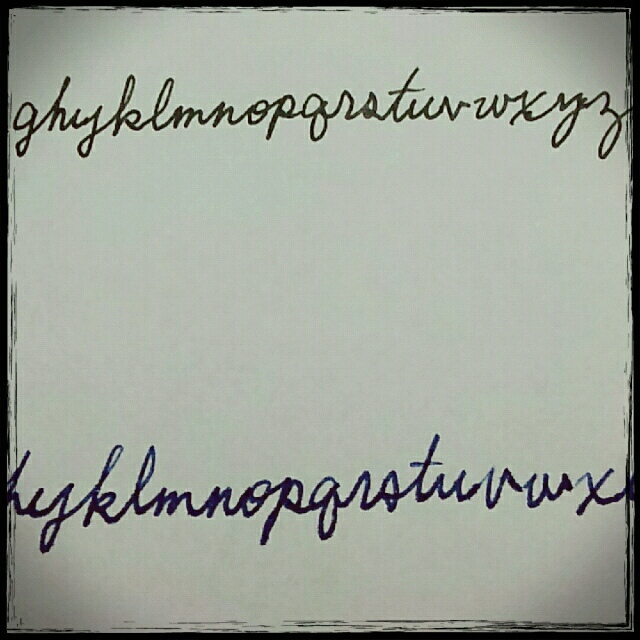 ghijklmnopqrstuvwxyz
hijklmnopqrstuvwx